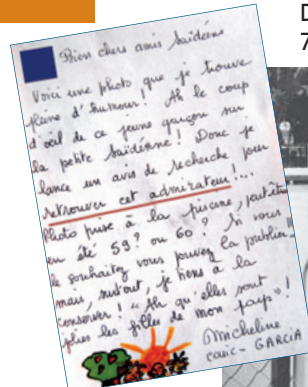 D
7
Bien chers amis Saïdéens
Voici une photo que je trouve
pleine d'humour! Ah le coup
d'oeil de ce jeune garçon sur
la petite Saïdéenne! Donc je
lance un avis de recherche pour
retrouver cet admirateur!...
Photo prise à la piscine, peut être
en été 59? ou 60? Si vous
le souhaitez vous pouvez la publier
mais, surtout, je tiens à la
conserver! "Ah qu'elles sont
jolies les filles de mon pays"!
Micheline
GARCIA